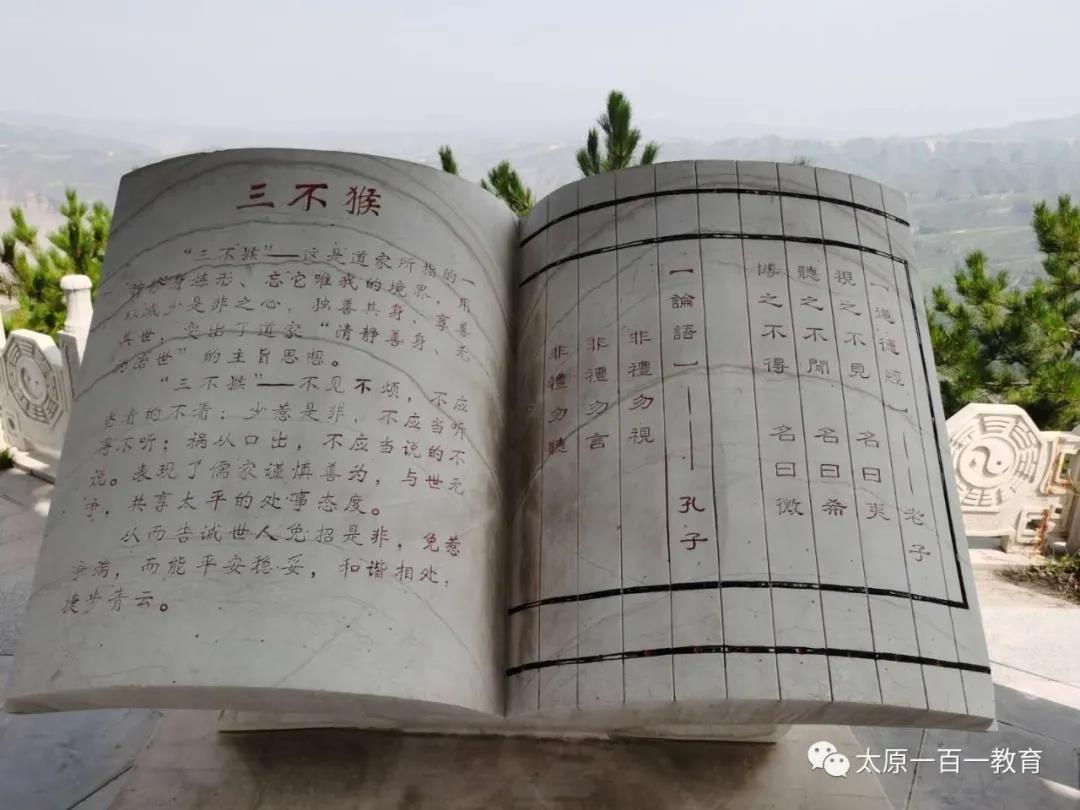 三不猴
“三不猴”——这是道家所指的一
种修身炼形、忘它唯我的境界，用
以减少是非之心，独善其身，享善
其世，突出了道家“清静善身、无
为治世”的主旨思想。
“三不猴”——不见不烦，不应
当看的不看；少惹是非，不应当听
得不听；祸从口出，不应当说的不
说。表现了儒家谨慎善为，与世无
争，共享太平的处事态度。
从而告诫世人免招是非，免惹
争端，而能平安稳妥，和谐相处，
捷步青云。
【道德經】——老子
視之不見 名曰夷
聽之不聞 名曰希
博之不得 名曰微
【論語】——孔子
非禮勿視
非禮勿言
非禮勿聽
太原一百一教育